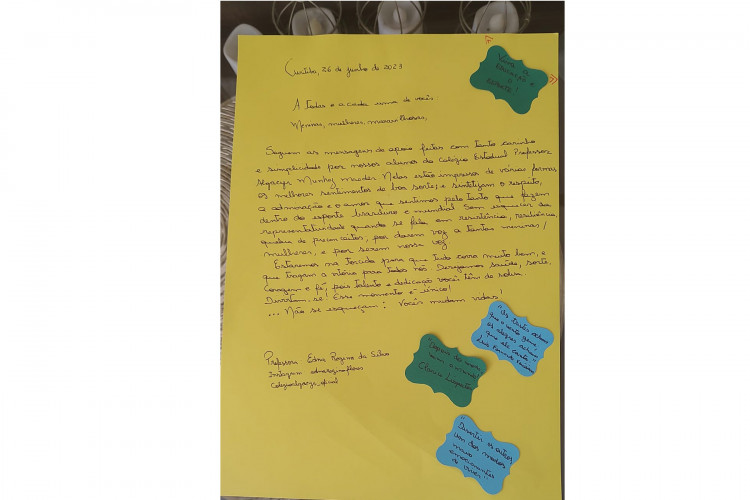 Curitiba, 26 de junho de 2023
Viva a
EDUCAÇÃO e
o
ESPORTE!
A todas e a cada uma de vocês
Meninas, mulheres, maravilhosas,
Seguem as mensagens de apoio feitas com tanto carinho
e simplicidade por nossos alunos do Colégio Estadual Professor
Mader Nelas estão impressos de várias formas
os melhores sentimentos de boa sorte, e sintetizam o respeito,
a admiração e o amor que sentimos pelo tanto que fazem
dentro do esporte brasileiro e mundial Sem esquecer da
representatividade quando se fala em resistência, resiliência,
quebra de preconceitos, por darem voz a tantas meninas/
mulheres, e por serem nossa voz
Estaremos na torcida para que tudo corra muito bem, e
que tragam a vitória para todos nós Desejamos saúde, sorte,
coragem e fé, pois talento e dedicação vocês têm de sobra.
Divirtam-se! Esse momento é único!
... Não se esqueçam: Vocês mudam vidas!
Professora Edna Regina da Silva
Instagram
"Os tristes acham
que o vento geme,
os alegres acham
que ele canta"
Luis Fernando Veríssimo
Clarice Lispector
um dos modos
mais
emocionantes
de viver"